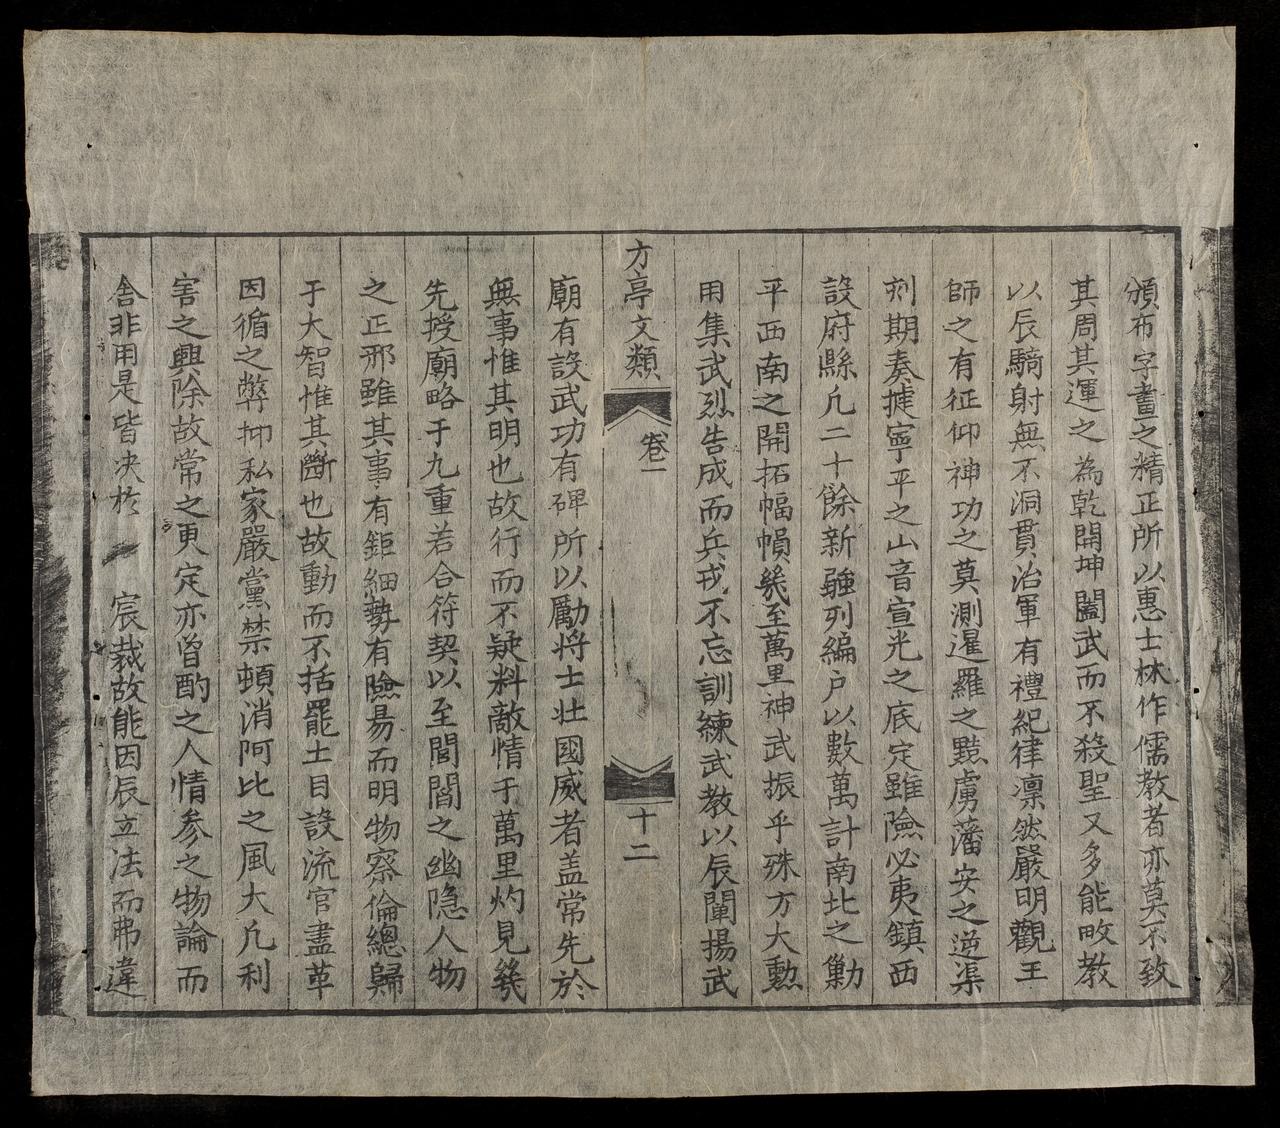 頒布字畫之精正所以惠士林作儒教者亦莫不致
其周其運之為乾開坤闔武而不殺聖又多能畋教
以辰騎射無不洞貫治軍有禮紀律凛然嚴明觀王
師之有征仰神功之莫測暹羅之黠虜藩安之逆渠
刻期奏捷寧平之山音宣光之底定雖險必夷鎮西
設府縣凡二十餘新疆列編户以數萬計南北之勦
平西南之開拓幅𢄙幾至萬里神武振乎殊方大勲
用集武烈告成而兵戎不忘訓練武教以辰闡揚武
方亭文類 卷一 十二
廟有設武功有碑所以勵将士壮國威者盖常先於
無事惟其明也故行而不疑料敵情于萬里灼見幾
先授廟略于九重若合符契以至閭閻之幽隐人物
之正邪雖其事有鉅細勢有險易而明物察倫總歸
于大智惟其斷也故動而不括罷土目設流官盡革
因循之弊抑私家嚴黨禁頓消阿比之風大凡利
害之興除故常之更定亦曾酌之人情参之物論而
舍非用是皆决於 宸裁故能因辰立法而弗違